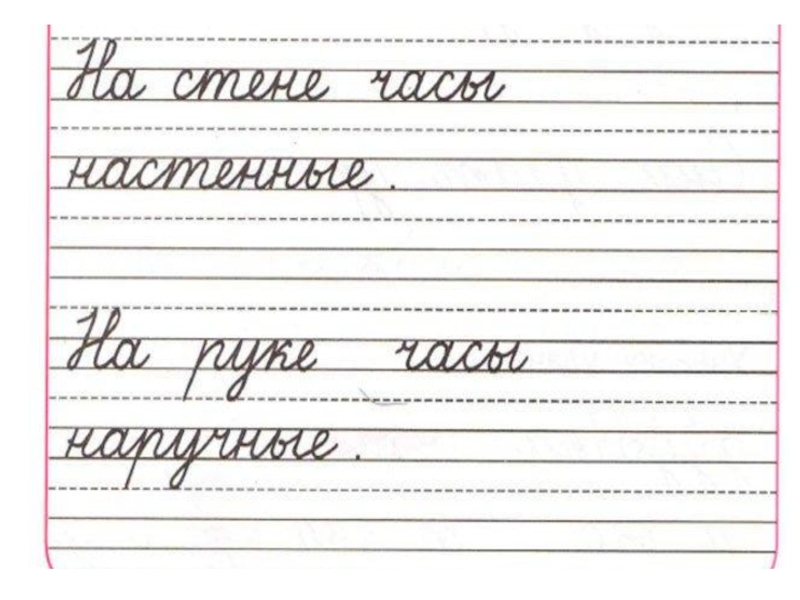 На стене часы
настенные.
На руке часы
наручные.